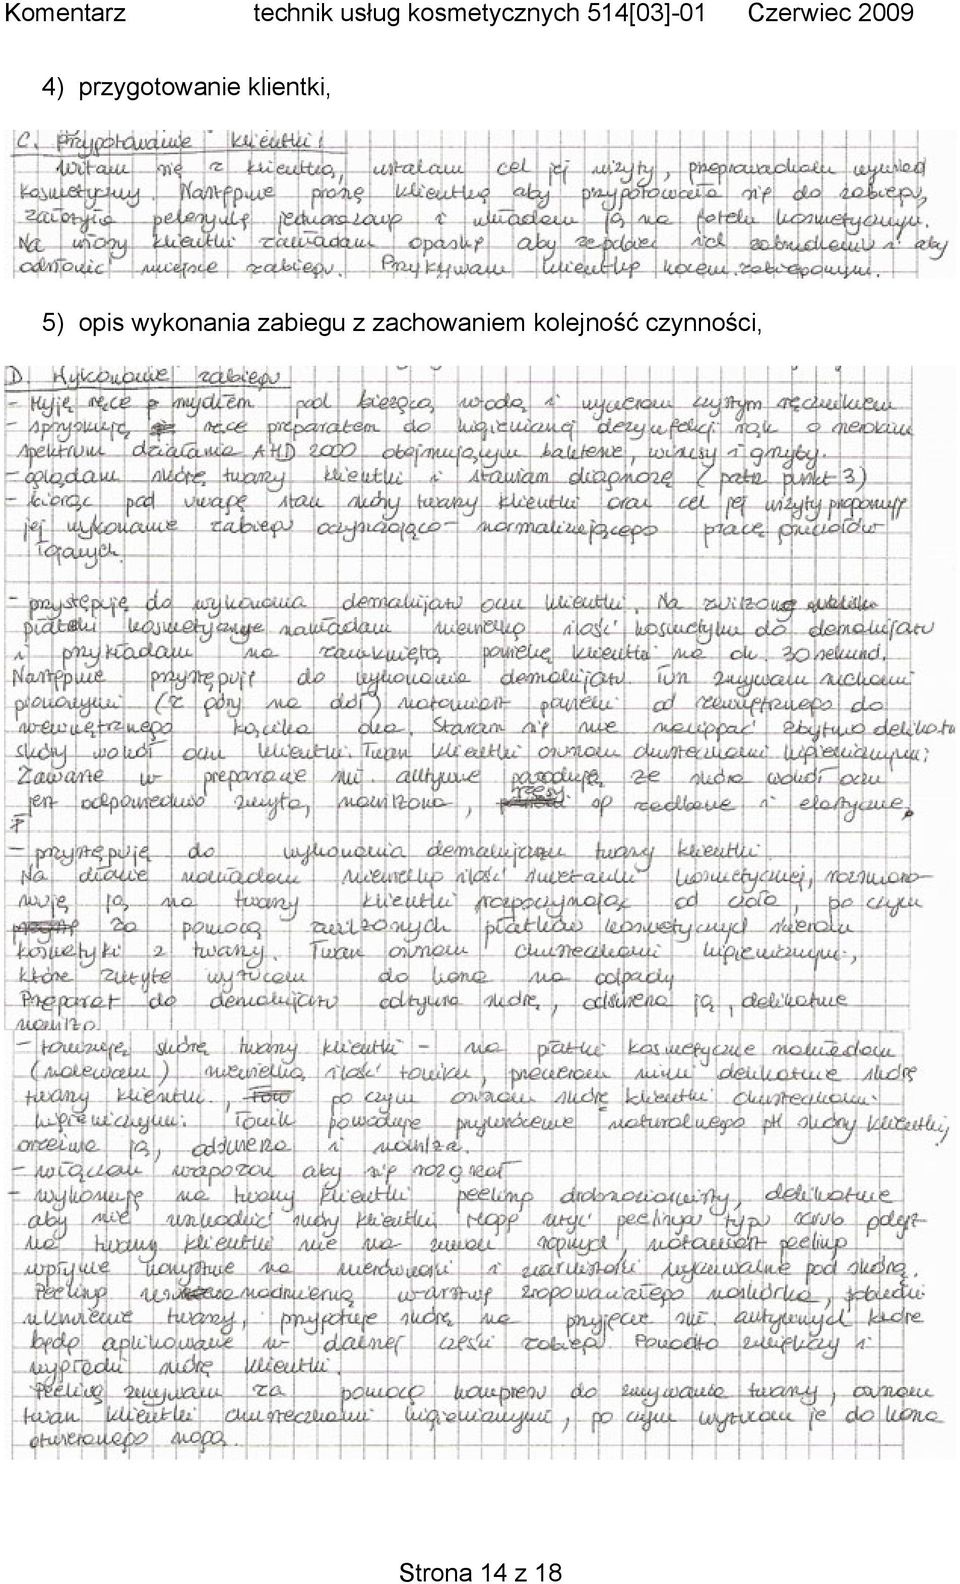 Komentarz technik usług kosmetycznych 514[03]-01 Czerwiec 2009
4) przygotowanie klientki,
C. Przygotowanie klientki:
Witam się z klientką, ustalam cel jej wizyty, przeprowadzam wywiad
kosmetyczny. Następnie proszę klientkę aby przygotowała się do zabiegu,
założyła pelerynkę jednorazową i układam ją na fotelu kosmetycznym.
Na włosy klientki zakładam opaskę aby zapobiec ich zabrudzeniu i aby
odsłonić miejsce zabiegu. Przykrywam klientkę kocem zabiegowym.
5) opis wykonania zabiegu z zachowaniem kolejność czynności,
D. Wykonanie zabiegu
- Myję ręce mydłem pod bieżącą wodą i wycieram czystym ręcznikiem
- spryskuję ręce preparatem do higienicznej dezynfekcji rąk o szerokim
spektrum działania AHD 2000 obejmującym bakterie, wirusy i grzyby.
- oglądam skórę twarzy klientki i stawiam diagnozę (patrz punkt 3)
- biorąc pod uwagę stan skóry twarzy klientki oraz cel jej wizyty proponuję
jej wykonanie zabiegu oczyszczająco-normalizującego pracę gruczołów
łojowych.
- przystępuję do wykonania demakijażu oczu klientki. Na zwilżone
płatki kosmetyczne nakładam niewielką ilość kosmetyku do demakijażu
i przykładam na zamkniętą powiekę klientki na ok. 30 sekund.
Następnie przystępuję do wykonania demakijażu. Tusz zmywam ruchami
pionowymi (z góry na dół) natomiast powieki od zewnętrznego do
wewnętrznego kącika oka. Staram się nie naciągać zbytnio delikatnej
skóry wokół oczu klientki. Twarz klientki osuszam chusteczkami higienicznymi;
Zawarte w preparacie sub. aktywne powodują że skóra wokół oczu
jest odpowiednio zmyta, nawilżona, rzęsy są zadbane i elastyczne.
- przystępuję do wykonania demakijażu twarzy klientki.
Na dłonie nakładam niewielką ilość śmietanki kosmetycznej, rozprowa-
dzam ją na twarzy klientki rozpoczynając od czoła, po czym
za pomocą zwilżonych płatków kosmetycznych zbieram
kosmetyki z twarzy. Twarz osuszam chusteczkami higienicznymi,
które zużyte wyrzucam do kosza na odpady
Preparat do demakijażu odżywia skórę, odświeża ją, delikatnie
nawilża.
- tonizuję skórę twarzy klientki - na płatki kosmetyczne nakładam
(nalewam) niewielką ilość toniku, przecieram nimi delikatnie skórę
twarzy klientki, po czym osuszam skórę klientki chusteczkami
higienicznymi. Tonik powoduje przywrócenie naturalnego pH skóry klientki,
orzeźwia ją, odświeża i nawilża.
- włączam wapozon aby się rozgrzał
- wykonuję na twarzy klientki peeling drobnoziarnisty, delikatnie
aby nie uszkodzić skóry klientki. Mogę użyć peelingu typu scrub gdyż
na twarzy klientki nie ma zmian ropnych, natomiast peeling
wpłynie korzystnie na nierówności i ziarnistości wyczuwalne pod skórą.
Peeling usuwa nadmierną warstwę zrogowaciałego naskórka, pobudzi
ukrwienie twarzy, przygotuje skórę na przyjęcie sub. aktywnych które
będą aplikowane w dalszej części zabiegu. Ponadto zmiękczy i
wygładzi skórę klientki.
Peeling zmywam za pomocą kompresu do zmywania twarzy, osuszam
twarz klientki chusteczkami higienicznymi, po czym wyrzucam je do kosza
otwieranego nogą.
Strona 14 z 18